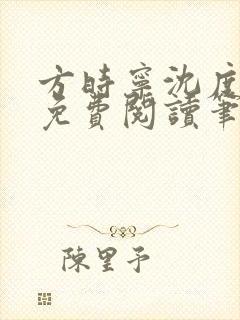 方時寧沈度
免費閱讀筆
陳里予